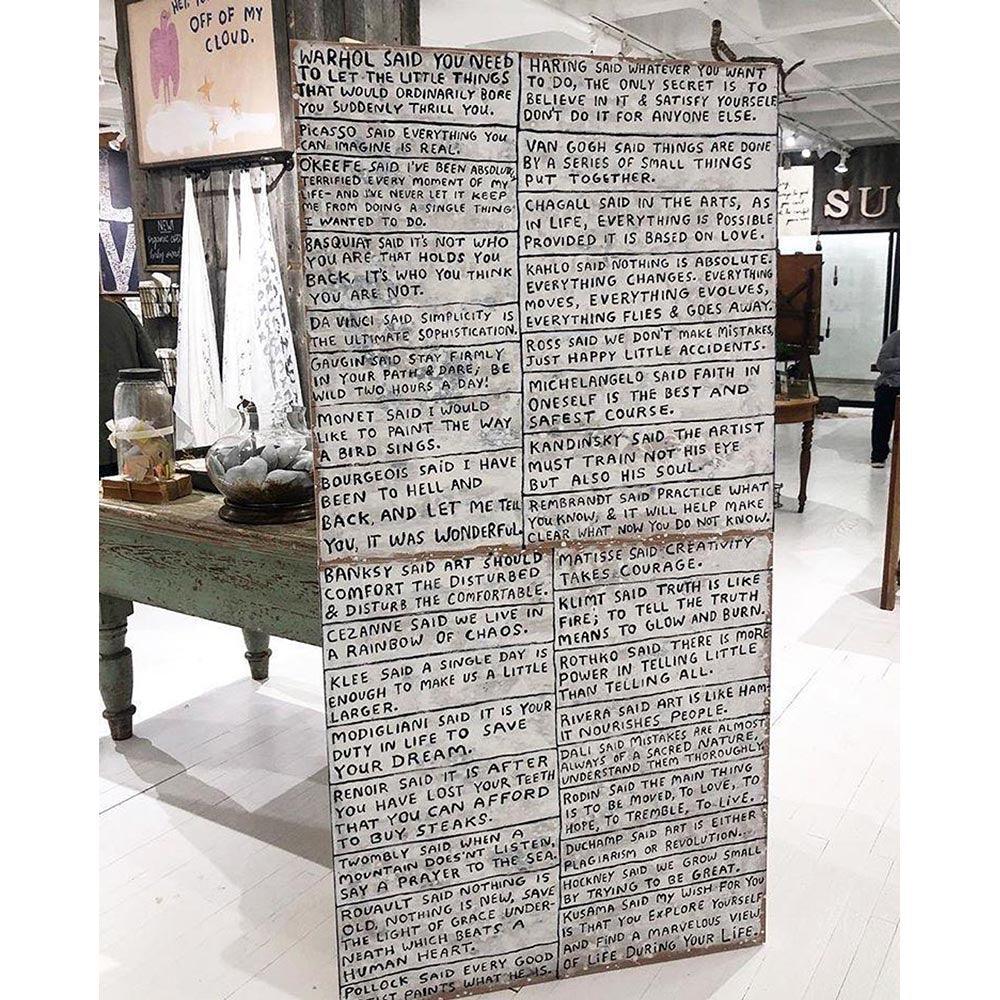 OFF OF MY
CLOUD.
WARHOL SAID YOU NEED
TO LET THE LITTLE THINGS
THAT WOULD ORDINARILY BORE
YOU SUDDENLY THRILL YOU.
PICASSO SAID EVERYTHING YOU
CAN IMAGINE IS REAL.
O'KEEFE SAID I'VE BEEN ABSOLUTELY
TERRIFIED EVERY MOMENT OF MY
LIFE- AND I'VE NEVER LET IT KEEP
ME FROM DOING A SINGLE THING
I WANTED TO DO.
BASQUIAT SAID IT'S NOT WHO
YOU ARE THAT HOLDS YOU
BACK, IT'S WHO YOU THINK
YOU ARE NOT.
DA VINCI SAID SIMPLICITY IS
THE ULTIMATE SOPHISTICATION.
GAUGIN SAID STAY FIRMLY
IN YOUR PATH & DARE; BE
WILD TWO HOURS A DAY!
MONET SAID I WOULD
LIKE TO PAINT THE WAY
A BIRD SINGS.
BOURGEOIS SAID I HAVE
BEEN TO HELL AND
BACK, AND LET ME TELL
YOU, IT WAS WONDERFUL.
HARING SAID WHATEVER YOU WANT
TO DO, THE ONLY SECRET IS TO
BELIEVE IN IT & SATISFY YOURSELF
DON'T DO IT FOR ANYONE ELSE.
VAN GOGH SAID THINGS ARE DONE
BY A SERIES OF SMALL THINGS
PUT TOGETHER.
CHAGALL SAID IN THE ARTS, AS
IN LIFE, EVERYTHING IS POSSIBLE
PROVIDED IT IS BASED ON LOVE.
KAHLO SAID NOTHING IS ABSOLUTE.
EVERYTHING CHANGES. EVERYTHING
MOVES, EVERYTHING EVOLVES,
EVERYTHING FLIES & GOES AWAY.
ROSS SAID WE DON'T MAKE MISTAKES,
JUST HAPPY LITTLE ACCIDENTS.
MICHELANGELO SAID FAITH IN
ONESELF IS THE BEST AND
SAFEST COURSE.
KANDINSKY SAID THE ARTIST
MUST TRAIN NOT HIS EYE
BUT ALSO HIS SOUL.
REMBRANDT SAID PRACTICE WHAT
YOU KNOW, & IT WILL HELP MAKE
CLEAR WHAT NOW YOU DO NOT KNOW.
BANKSY SAID ART SHOULD
COMFORT THE DISTURBED
& DISTURB THE COMFORTABLE.
CEZANNE SAID WE LIVE IN
A RAINBOW OF CHAOS.
KLEE SAID A SINGLE DAY IS
ENOUGH TO MAKE US A LITTLE
LARGER.
MODIGLIANI SAID IT IS YOUR
DUTY IN LIFE TO SAVE
YOUR DREAM.
RENOIR SAID IT IS AFTER
YOU HAVE LOST YOUR TEETH
THAT YOU CAN AFFORD
TO BUY STEAKS.
TWOMBLY SAID WHEN A
MOUNTAIN DOES'NT LISTEN,
SAY A PRAYER TO THE SEA.
ROUAULT SAID NOTHING IS
OLD, NOTHING IS NEW, SAVE
THE LIGHT OF GRACE UNDER-
NEATH WHICH BEATS A
HUMAN HEART.
POLLOCK SAID EVERY GOOD
PAINTS WHAT HE IS.
MATISSE SAID CREATIVITY
TAKES COURAGE.
KLIMT SAID TRUTH IS LIKE
FIRE; TO TELL THE TRUTH
MEANS TO GLOW AND BURN.
ROTHKO SAID THERE IS MORE
POWER IN TELLING LITTLE
THAN TELLING ALL.
RIVERA SAID ART IS LIKE HAM-
IT NOURISHES PEOPLE.
DALI SAID MISTAKES ARE ALMOST
ALWAYS OF A SACRED NATURE,
UNDERSTAND THEM THOROUGHLY.
RODIN SAID THE MAIN THING
IS TO BE MOVED, TO LOVE, TO
HOPE, TO TREMBLE, TO LIVE.
DUCHAMP SAID ART IS EITHER
PLAGIARISM OR REVOLUTION.
HOCKNEY SAID WE GROW SMALL
BY TRYING TO BE GREAT.
KUSAMA SAID MY WISH FOR YOU
IS THAT YOU EXPLORE YOURSELF
AND FIND A MARVELOUS VIEW
OF LIFE DURING YOUR LIFE.
NEW
SU